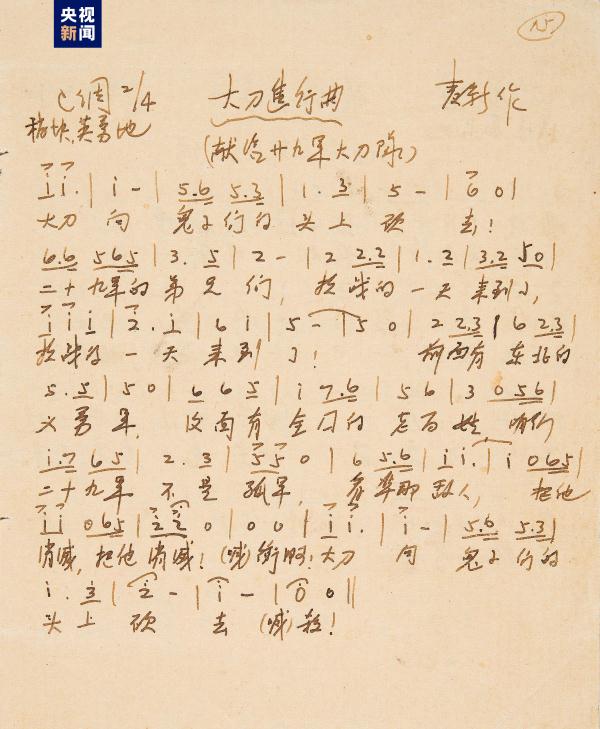 央视
新闻
15
C调 2/4 大刀进行曲 麦新作
稍快,英勇地
(献给廿九军大刀队)
i i. | i - | 5.6 5.3 | i. 3 | 5 - | 6 0 |
大刀 向 鬼子们的 头上 砍 去!
6.6 565 | 3. 5 | 2 - | 2 2.2 | 1. 2 | 3.2 50 |
二十九军的弟兄们, 抗战的一天来到了,
i i i | 2. i | 6 i | 5 - | 5 0 | 2 2.3 | 6 2.3 |
抗战的一天来到了! 前面有东北的
5. 5 | 5 0 | 6 6 5 | i 7.6 | 5 6 | 3 056 |
义勇军, 后面有全国的老百姓 咱们
i.7 65 | 2. 3 | 55 0 | 6 5.6 | i i. | i 065 |
二十九军不是孤军, 看準那敌人, 把他
i i 065 | 2 2 0 | 0 0 | i i. | i - | 5.6 5.3 |
消滅,把他消滅!(喊)衝啊!大刀 向 鬼子们的
i. 3 | 2 - | i - | 0 0 ||
头上砍 去 (喊)殺!